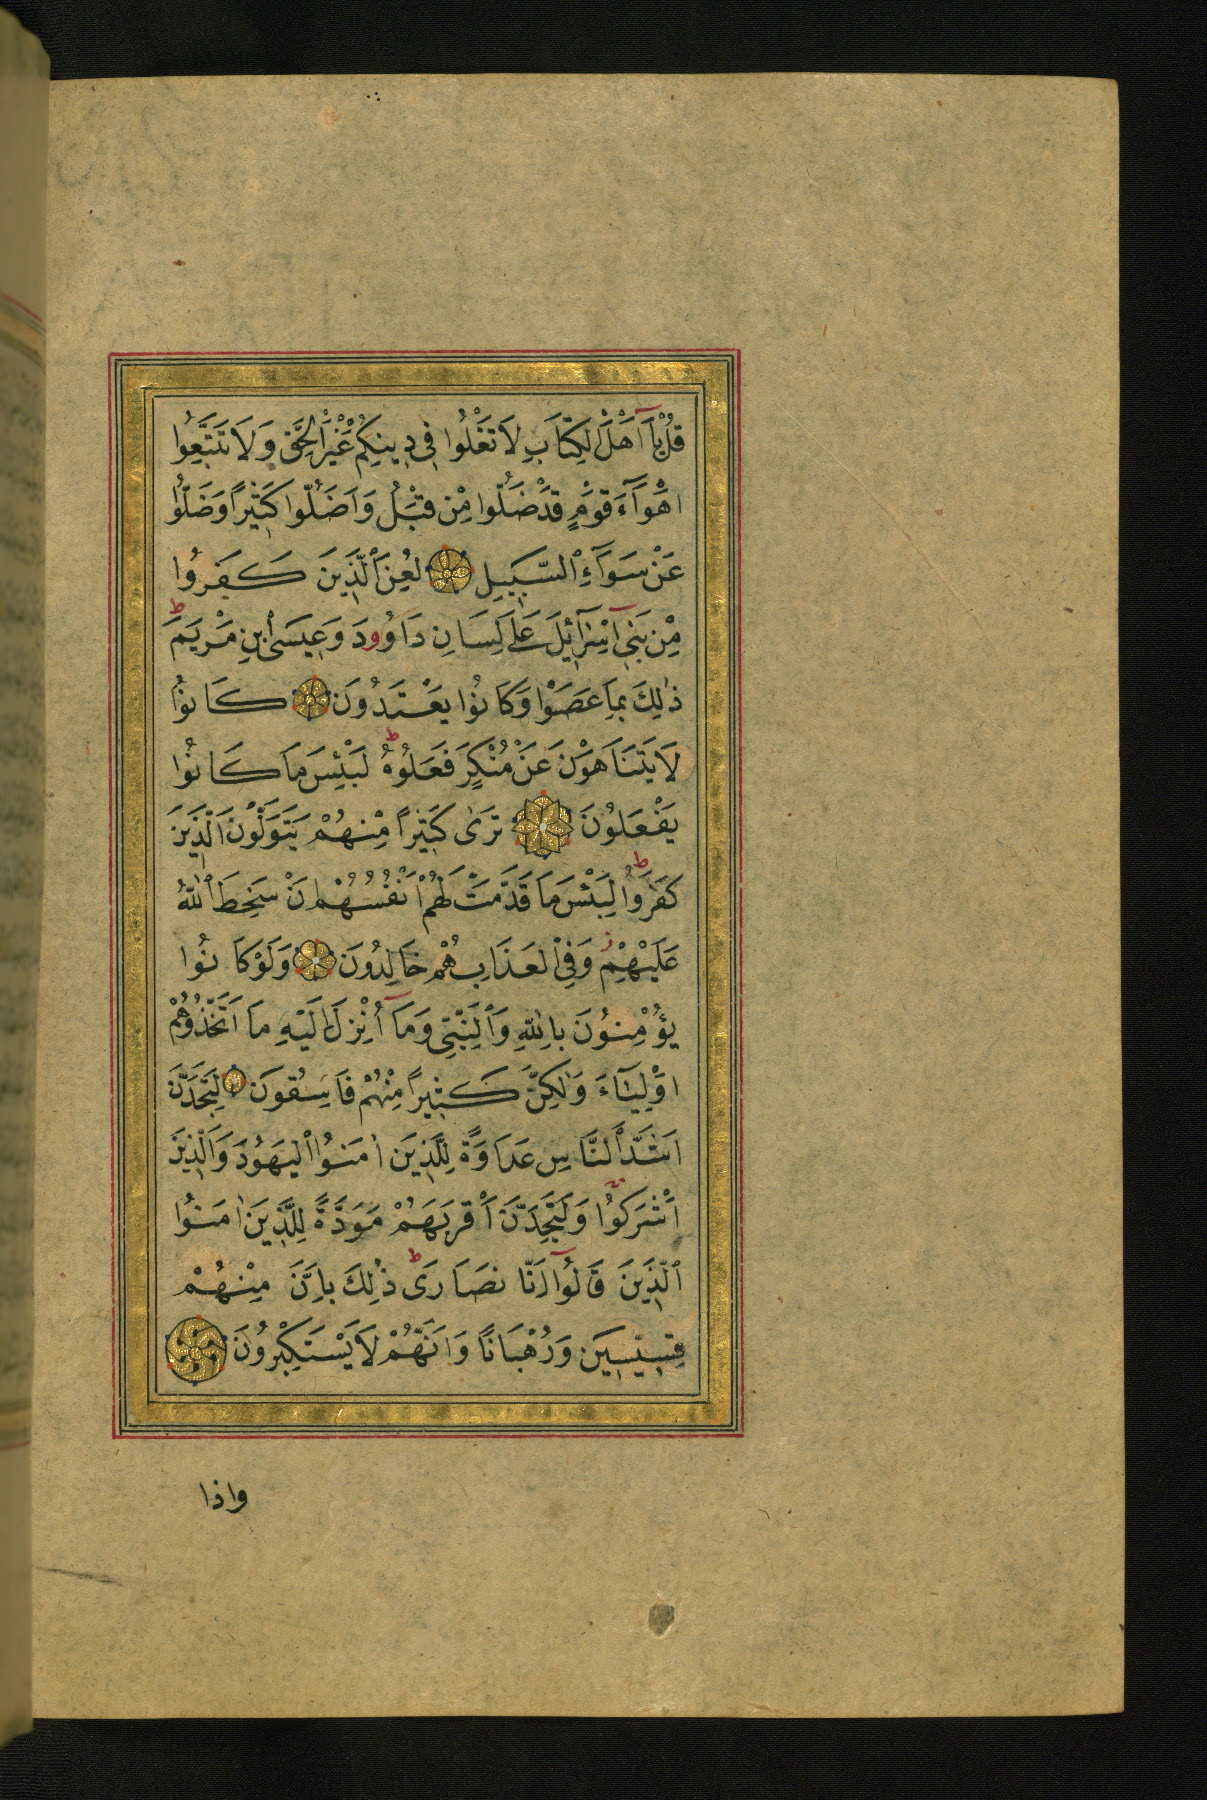 قُلْ يَآ اَهْلَ الْكِتَابِ لَا تَغْلُوا فِى دِينِكُمْ غَيْرَ الْحَقِّ وَلَا تَتَّبِعُوا
اهْوَآءَ قَوْمٍ قَدْ ضَلُّوا مِنْ قَبْلُ وَاَضَلُّوا كَثِيرًا وَضَلُّوا
عَنْ سَوَآءِ ٱلسَّبِيلِ لُعِنَ ٱلَّذِينَ كَفَرُوا
مِنْ بَنِى اِسْرَآئِلَ عَلٰى لِسَانِ دَاوُودَ وَعِيسَى ابْنِ مَرْيَمَ ط
ذٰلِكَ بِمَا عَصَوْا وَكَانُوا يَعْتَدُونَ كَانُوا
لَا يَتَنَاهَوْنَ عَنْ مُنْكَرٍ فَعَلُوهُ ط لَبِئْسَ مَا كَانُوا
يَفْعَلُونَ تَرٰى كَثِيرًا مِنْهُمْ يَتَوَلَّوْنَ الَّذِينَ
كَفَرُوا ط لَبِئْسَ مَا قَدَّمَتْ لَهُمْ اَنْفُسُهُمْ اَنْ سَخِطَ ٱللّٰهُ
عَلَيْهِمْ وَفِى الْعَذَابِ هُمْ خَالِدُونَ وَلَوْ كَانُوا
يُؤْمِنُونَ بِاللّٰهِ وَٱلنَّبِىِّ وَمَآ اُنْزِلَ اِلَيْهِ مَا اتَّخَذُوهُمْ
اوْلِيَآءَ وَلٰكِنَّ كَثِيرًا مِنْهُمْ فَاسِقُونَ لَتَجِدَنَّ
اَشَدَّ النَّاسِ عَدَاوَةً لِلَّذِينَ اٰمَنُوا الْيَهُودَ وَالَّذِينَ
اَشْرَكُوا وَلَتَجِدَنَّ اَقْرَبَهُمْ مَوَدَّةً لِلَّذِينَ اٰمَنُوا
ٱلَّذِينَ قَالُوآ اِنَّا نَصَارَى ط ذٰلِكَ بِاَنَّ مِنْهُمْ
قِسِّيسِينَ وَرُهْبَانًا وَاَنَّهُمْ لَا يَسْتَكْبِرُونَ
واذا